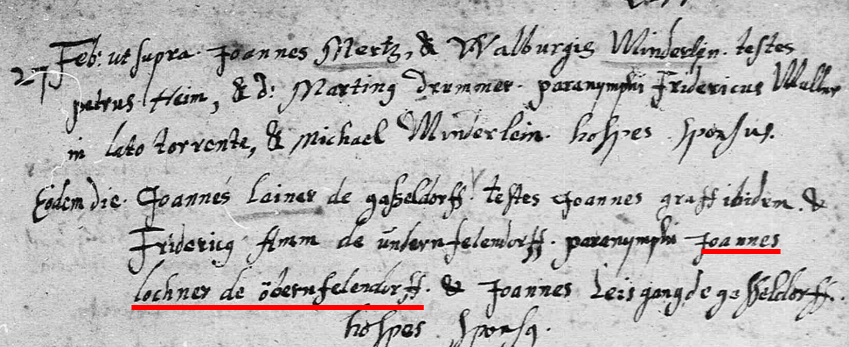 27 Feb: ut supra. Joannes Mertz, & Walburgis Minderlen. testes
petrus Heim, & d: Martinꝰ drummer. paranymphi Fridericus Waller
in lato torrente, & Michael Minderlein. hospes sponsus.
Eodem die. Joannes Lainer de gasseldorff. testes Joannes graff ibidem. &
Fridericꝰ Amm de undernfelendorff. paranymphi Joannes
lochner de öbernfelendorff. & Joannes Leisgang de gasseldorff.
hospes sponsꝰ.